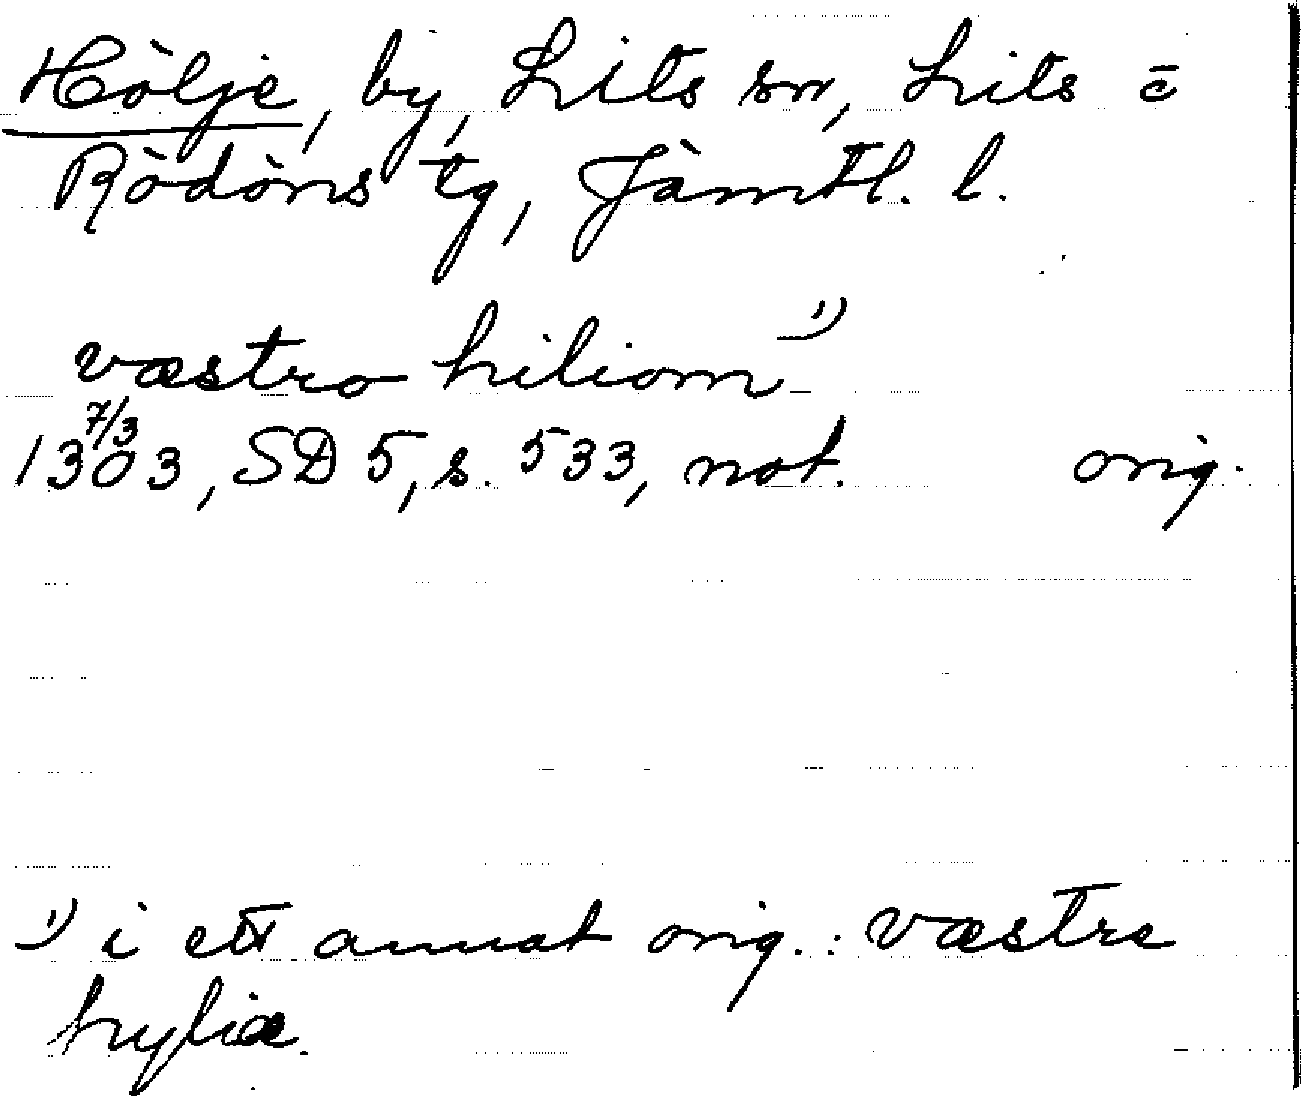 Hölje, by, Lits sn, Lits o
Rödöns tg, Jämtl. l.
væstro hiliom 1)
7/3
1303, SD 5, s. 533, not. orig.
1) i ett annat orig.: væstre
hyliæ.